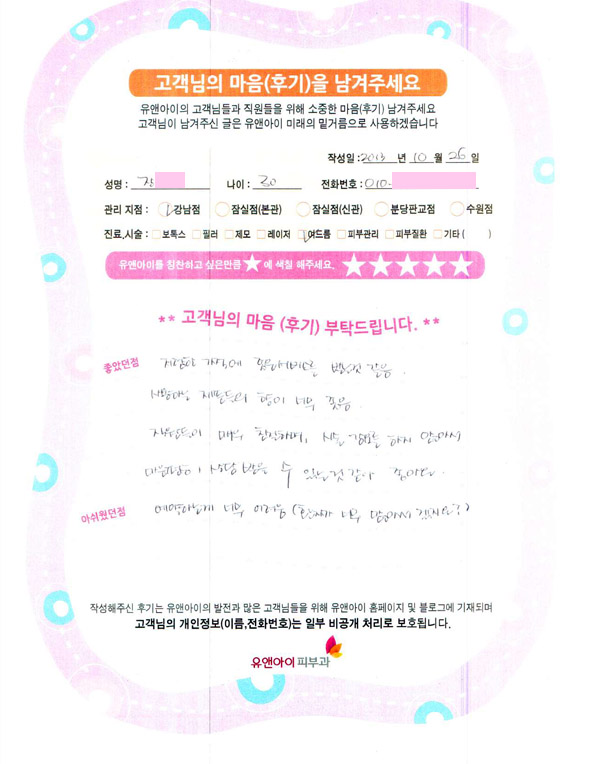 고객님의 마음(후기)을 남겨주세요
유앤아이의 고객님들과 직원들을 위해 소중한 마음(후기) 남겨주세요
고객님이 남겨주신 글은 유앤아이 미래의 밑거름으로 사용하겠습니다
작성일 : 2013 년 10 월 26 일
성명 : 나이 : 30 전화번호 : 010-
관리 지점 : 강남점 잠실점(본관) 잠실점(신관) 분당판교점 수원점
진료,시술 : 보톡스 필러 제모 레이저 여드름 피부관리 피부질환 기타 ( )
유앤아이를 칭찬하고 싶은만큼 ★에 색칠 해주세요. ★★★★★
** 고객님의 마음 (후기) 부탁드립니다. **
좋았던점 가격에 받은것 같음.
너무 좋음.
직원분들이 매우 친절하며, 시술 강요를 하지 않아서
상담 받을 수 있는것 같아 좋아요.
아쉬웠던점 너무 어려움 (환자가 너무 많아서 겠지요?)
작성해주신 후기는 유앤아이의 발전과 많은 고객님들을 위해 유앤아이 홈페이지 및 블로그에 기재되며
고객님의 개인정보(이름,전화번호)는 일부 비공개 처리로 보호됩니다.
유앤아이피부과